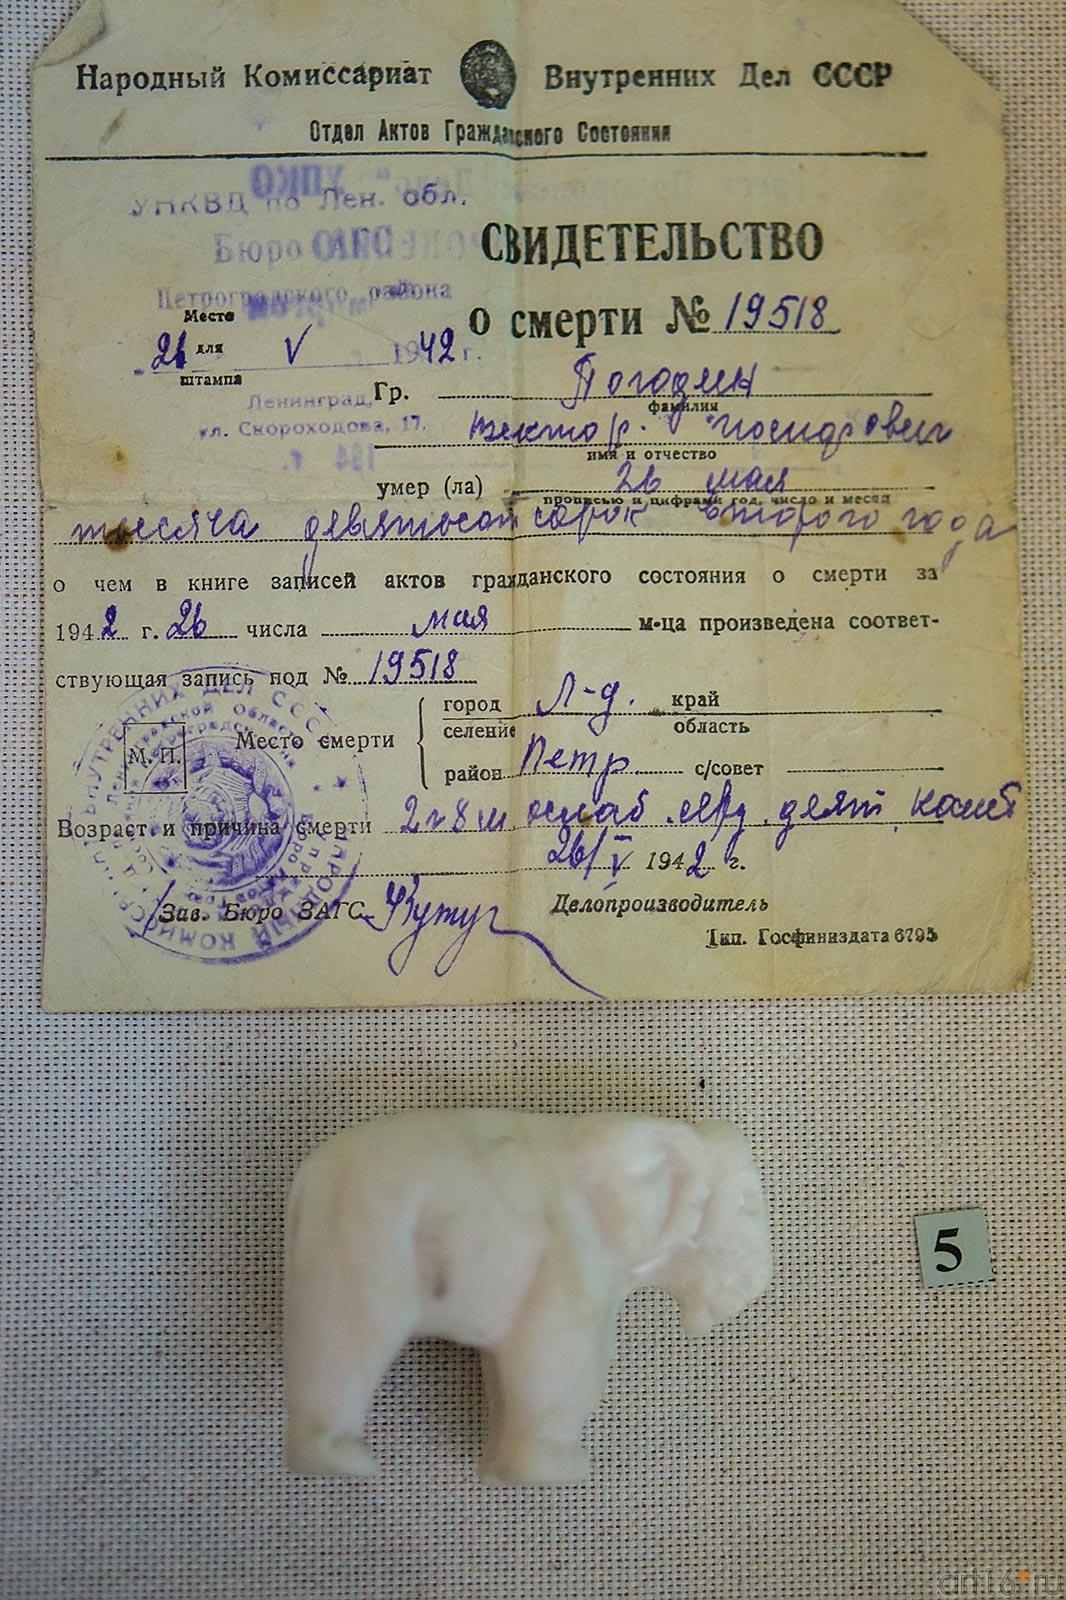 Народный Комиссариат Внутренних Дел СССР
Отдел Актов Гражданского Состояния
УНКВД по Лен. обл.
Бюро
Петроградского района
Место
для
штампа
26 V 1942 г.
Ленинград,
ул. Скороходова, 17.
194 г.
СВИДЕТЕЛЬСТВО
о смерти № 19518
Гр. Погодин
фамилия
имя и отчество
умер (ла) 26 мая
прописью и цифрами год, число и месяц
тысяча девятьсот сорок второго года
о чем в книге записей актов гражданского состояния о смерти за
1942 г. 26 числа мая м-ца произведена соответ-
ствующая запись под № 19518
М. П.
Место смерти
город Л-д. край
селение область
район Петр. с/совет
Возраст и причина смерти 2 г 8 м ослаб серд. деят
26/V 1942 г.
Зав. Бюро ЗАГС
Делопроизводитель
Тип. Госфиниздата 6795
5
art16.ru